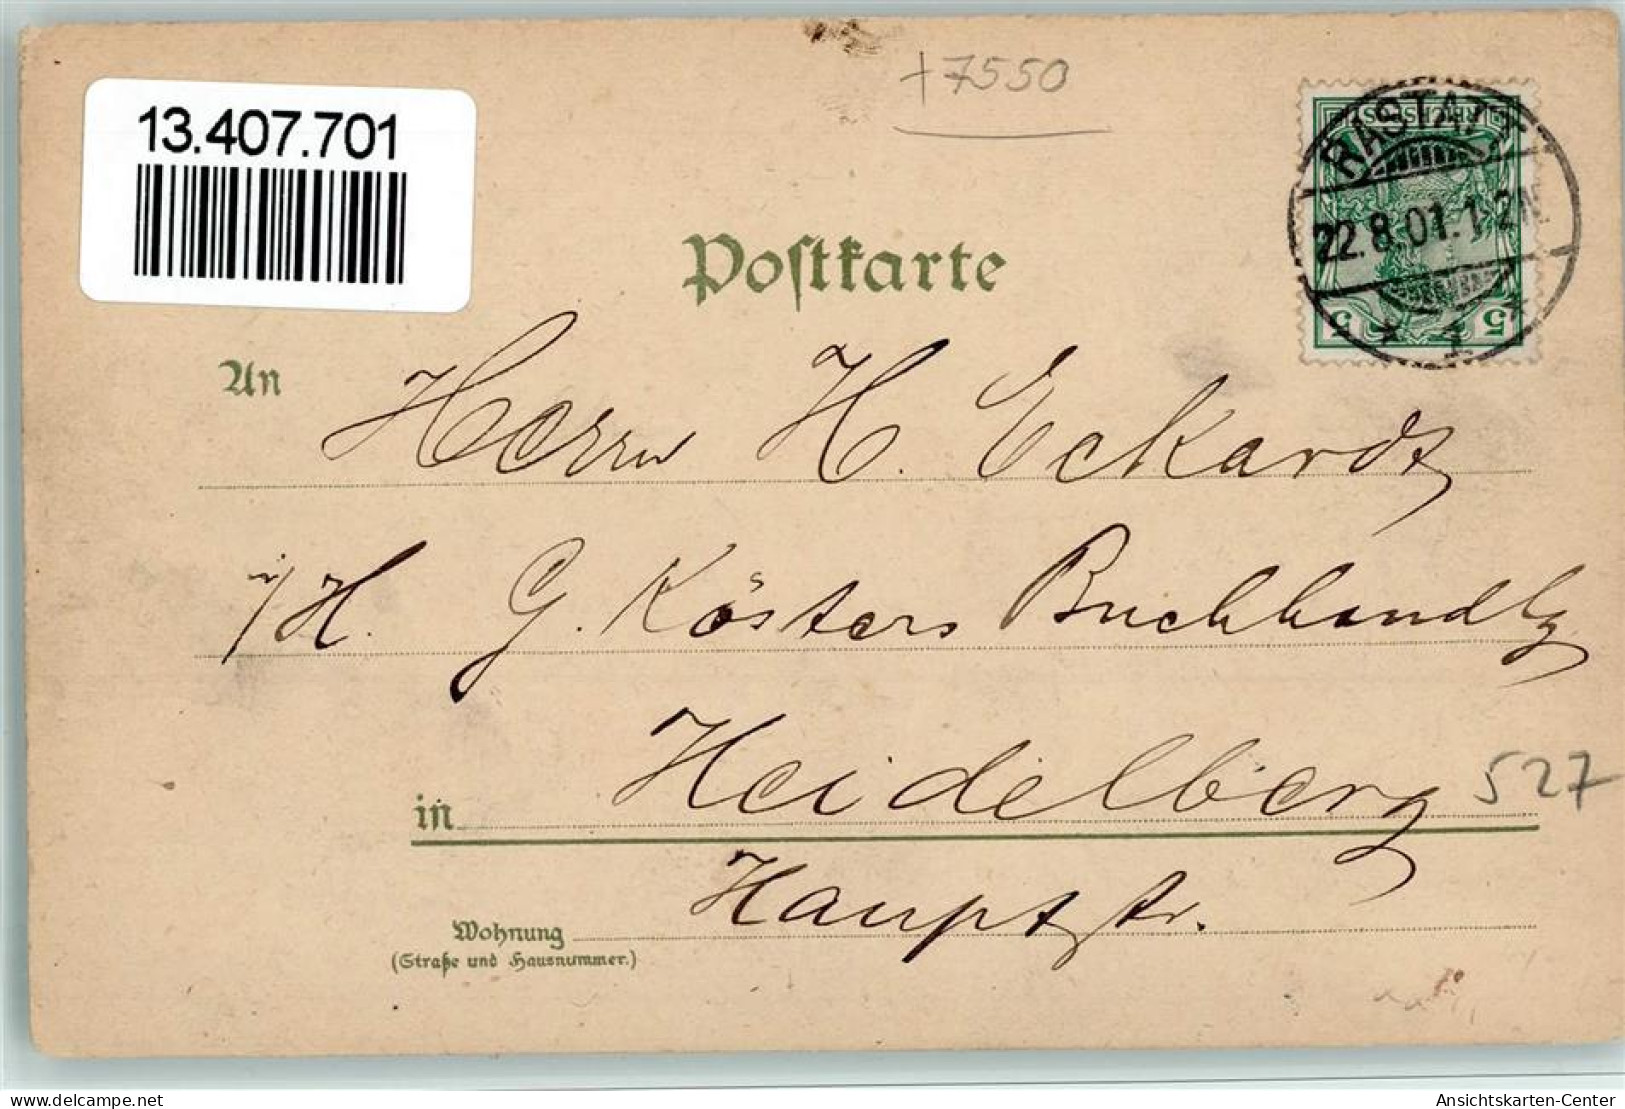 13.407.701
+7550
REICHSPOST
RASTATT
22.8.01.1-2N.
* 1 *
5 5
Postkarte
An Herrn H. Eckardt
i/H. G. Kösters Buchhandlg
in Heidelberg 527
Hauptstr.
Wohnung
(Straße und Hausnummer.)
delcampe.net
Ansichtskarten-Center